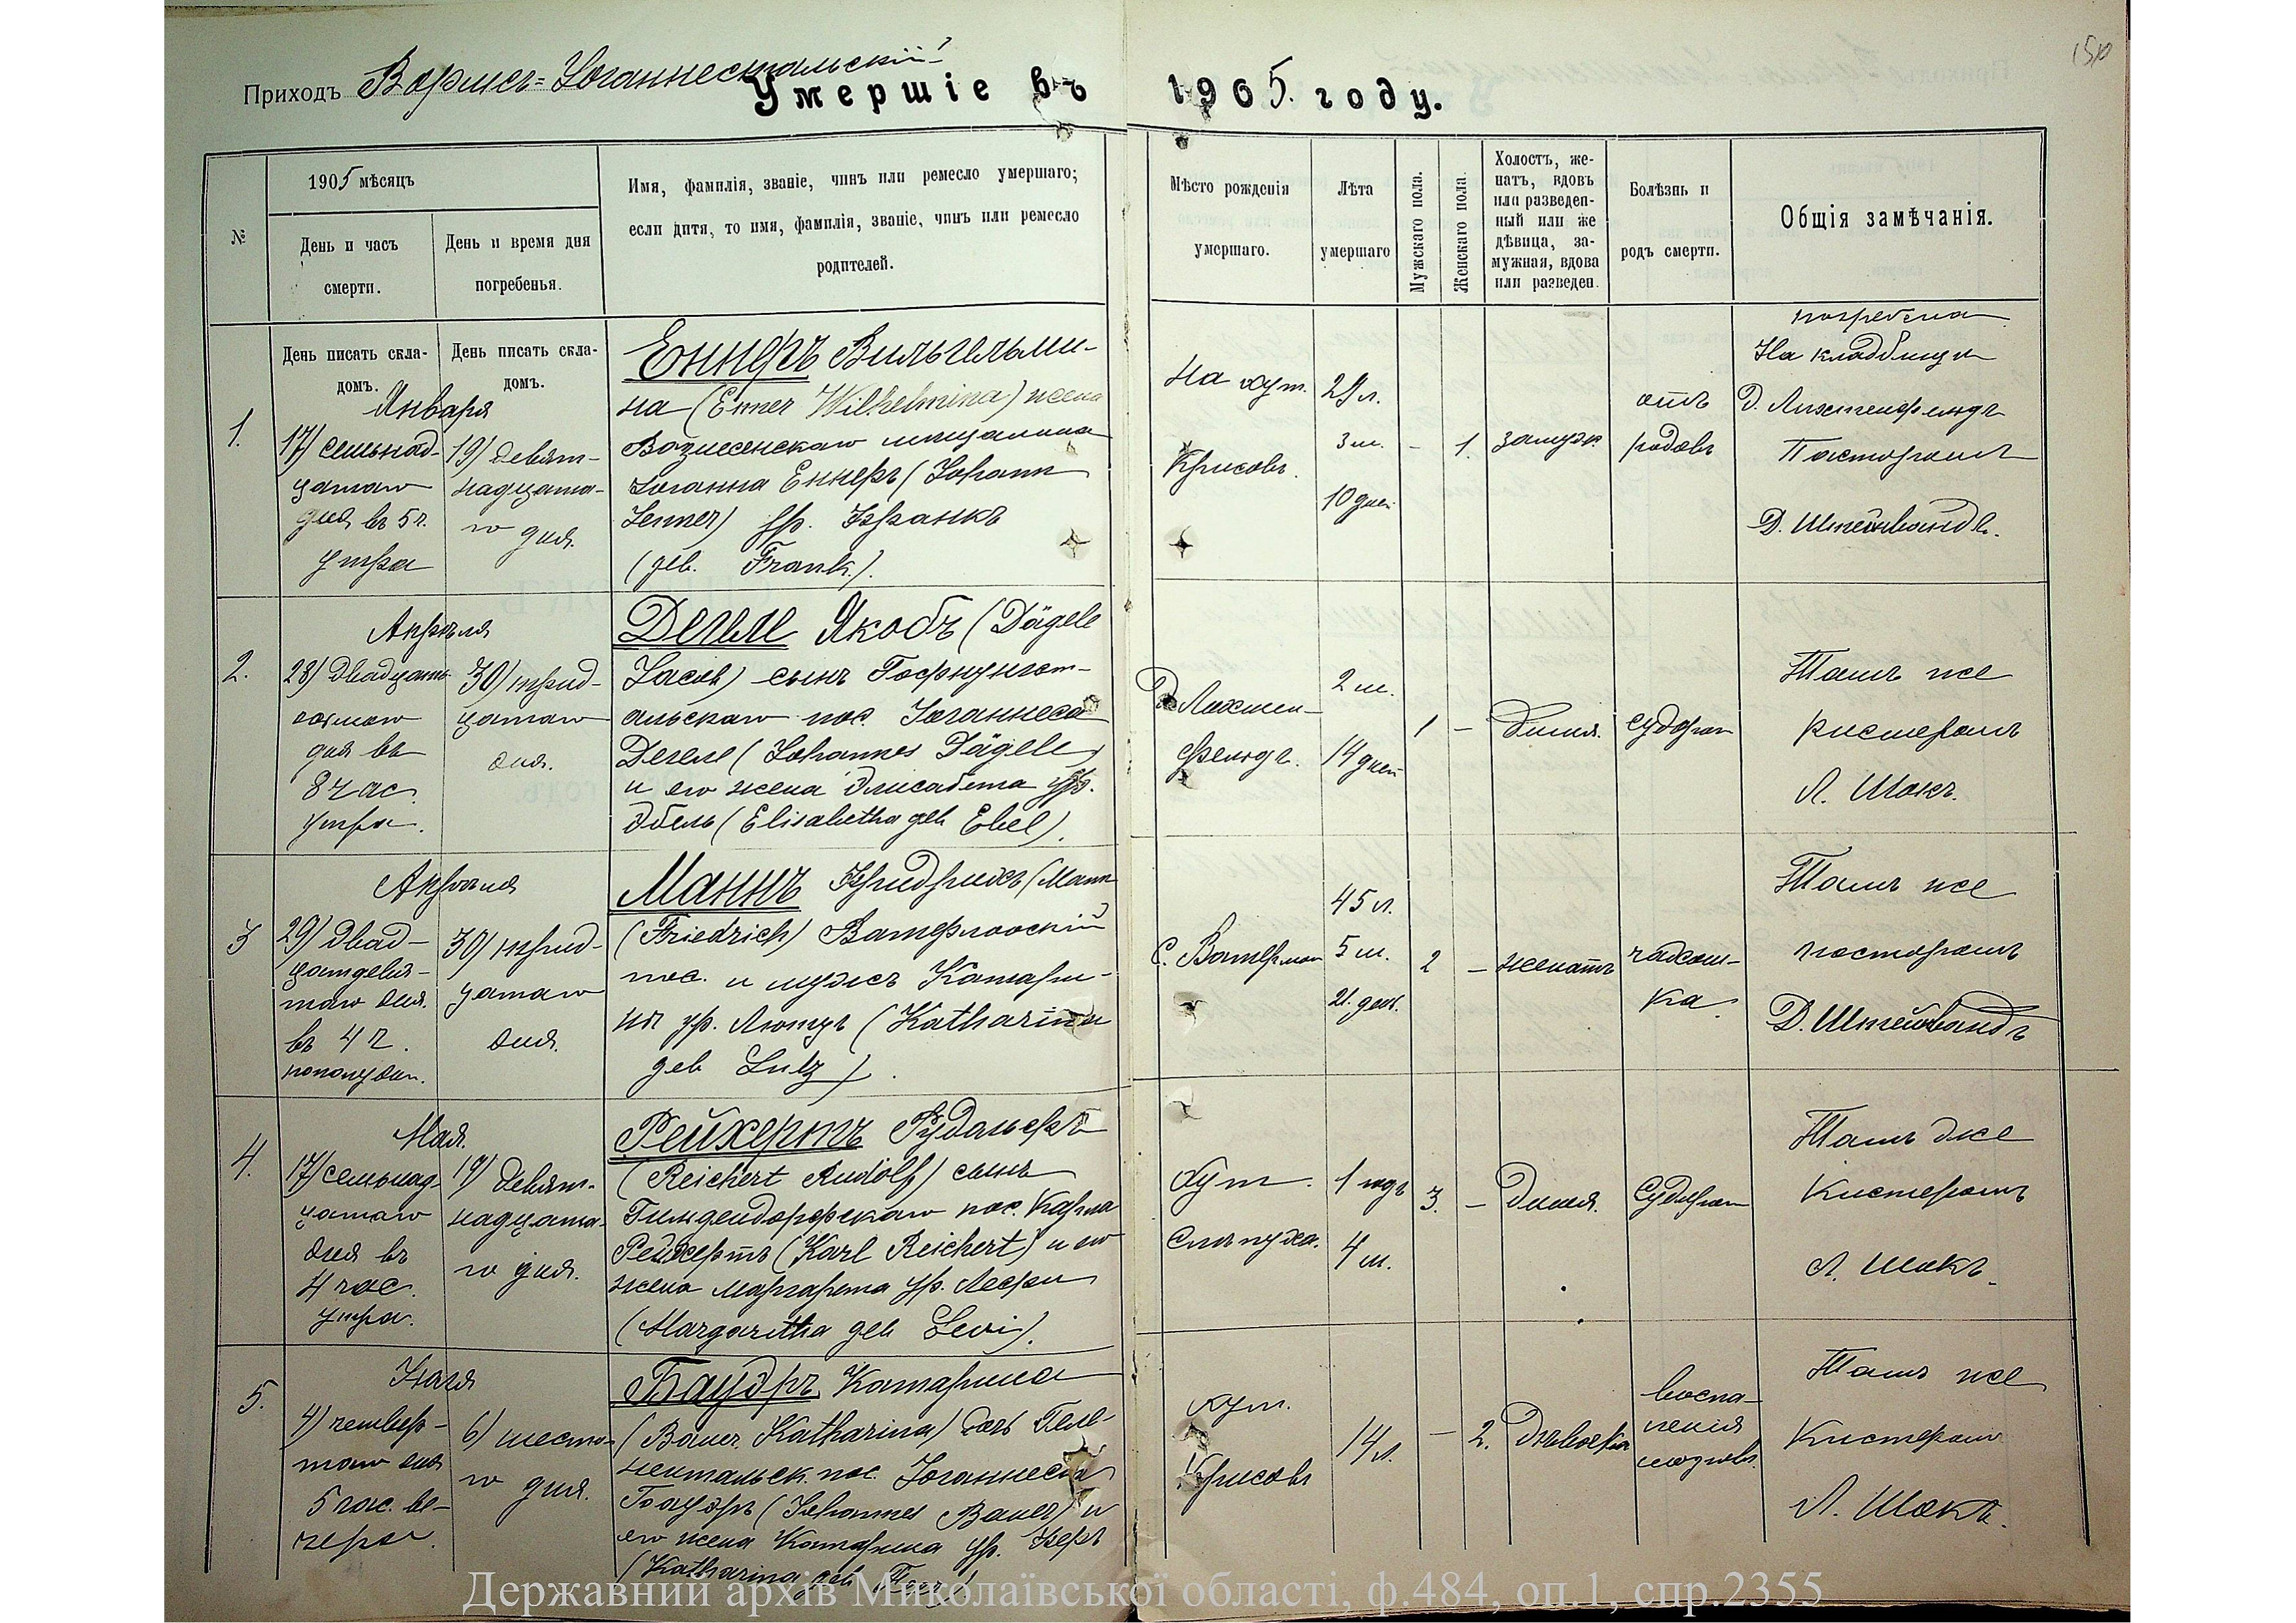 150
Приходъ Вормсъ-Іоганнестальскій
Умершіе въ 1905 году.
№
1905 мѣсяцъ
День и часъ
смерти.
День и время дня
погребенья.
Имя, фамилія, званіе, чинъ или ремесло умершаго;
если дитя, то имя, фамилія, званіе, чинъ или ремесло
родителей.
Мѣсто рожденія
умершаго.
Лѣта
умершаго
Мужскаго пола.
Женскаго пола.
Холостъ, же-
натъ, вдовъ
или разведен-
ный или же
дѣвица, за-
мужная, вдова
или разведен.
Болѣзнь и
родъ смерти.
Общія замѣчанія.
День писать скла-
домъ.
День писать скла-
домъ.
1.
Января
17) семьнад-
цатаго
дня въ 5 ч.
утра
19) девят-
надцата-
го дня.
Еннеръ Вильгельми-
на (Enner Wilhelmina) жена
Вознесенскаго мѣщанина
Іоганна Еннеръ (Johann
Jenner) ур. Франкъ
(geb. Frank).
На хут.
Крисовъ.
29 л.
3 м.
10 дней
-
1.
замуж.
отъ
родовъ
погребена
На кладбищѣ
Д. Лихтенфельдъ
Пасторомъ
Д. Штейнвандъ.
2.
Апрѣля
28) двадцать
восьмаго
дня въ
8 час.
утра.
30) трид-
цатаго
дня.
Дегеле Якобъ (Dägele
Jacob) сынъ Гофнунгст-
альскаго пос. Іоганнеса
Дегеле (Johannes Dägele)
и его жена Элисабета ур.
Эбель (Elisabetha geb Ebel).
Д. Лихтен-
фельдъ.
2 м.
14 дней
1
-
Дитя.
судорги
Тамъ же
кистеромъ
Л. Шокъ.
3
Апрѣля
29) двад-
цатдевя-
таго дня.
въ 4 ч.
пополудни.
30) трид-
цатаго
дня.
Маннъ Фридрихъ (Mann
(Friedrich) Ватерлооскій
пос. и мужъ Катари-
ны ур. Лютцъ (Katharina
geb Lutz).
С. Ватерлоо
45 л.
5 м.
21. дня.
2
-
женатъ
чахот-
ка
Тамъ же
пасторомъ
Д. Штейнвандъ
4.
Мая.
17) семьнад-
цатаго
дня въ
4 час.
утра.
19) девят-
надцата-
го дня.
Рейхертъ Рудольфъ
(Reichert Rudolf) сынъ
Гильдендорфскаго пос. Карла
Рейхертъ (Karl Reichert) и его
жена Маргарета ур. Леври
(Margaretha geb Levi).
Хут.
Слѣпуха.
1 годъ
4 м.
3.
-
Дитя.
Судорги
Тамъ же
Кистеромъ
Л. Шокъ.
5.
Іюля
4) четвер-
таго дня
5 час. ве-
чера.
6) шесто-
го дня.
Бауэръ Катарина
(Bauer Katharina) дочь Гелѣ-
нентальск. пос. Іоганнеса
Бауэръ (Johannes Bauer) и
его жена Катарина ур.
(Katharina geb
хут.
Крисовъ
14 л.
-
2.
Дѣвочка
воспа-
ленія
мозговъ.
Тамъ же
Кистеромъ
Л. Шокъ.
Державний архів Миколаївської області, ф.484, оп.1, спр.2355